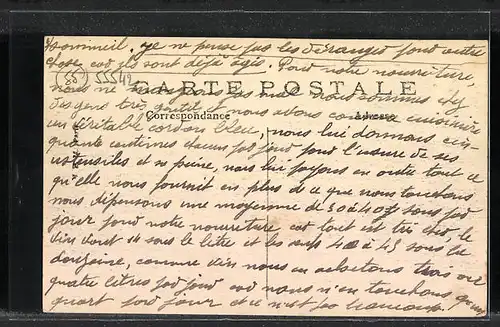 sommeil. Je ne pense pas les déranger pour autre
chose car ils sont déjà âgés. Pour notre nourriture,
(55) 55549
CARTE POSTALE
nous ne sommes pas mal nous sommes chez
des gens très gentils et nous avons comme cuisinière
Correspondance
Adresse
un véritable cordon bleu, nous lui donnons cin-
quante centimes chacun par jour pour l'usure de ses
ustensiles et sa peine, nous lui payons en outre tout ce
qu'elle nous fournit en plus de ce que nous touchons
nous dépensons une moyenne de 30 à 40 sous par
jour pour notre nourriture car tout est très cher, le
vin vaut sous le litre et les oeufs 42 à 45 sous la
douzaine, comme vin nous en achetons trois ou
quatre litres par jour car nous n'en touchons qu'un
quart par jour et ce n'est pas beaucoup.